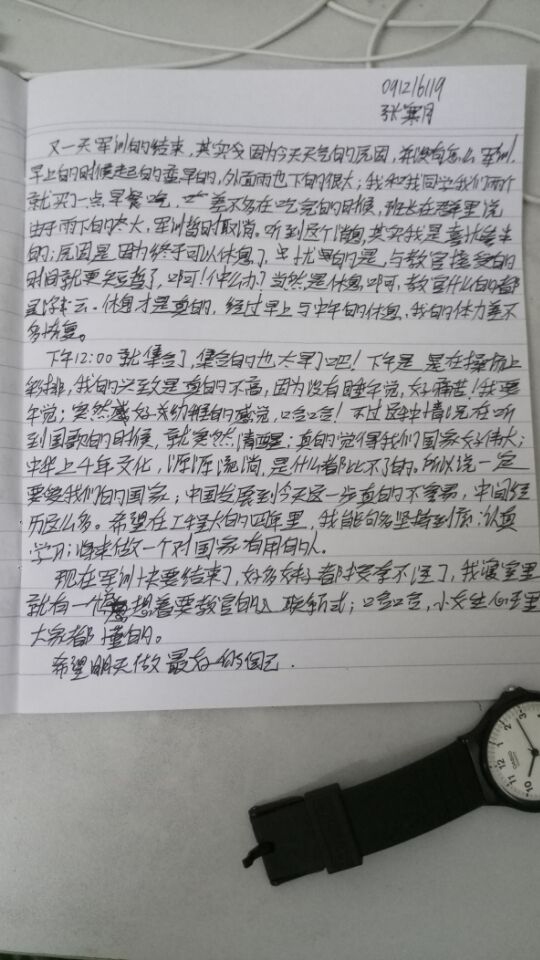 09121619
张寒月
又一天军训的结束，其实受因为今天天气的原因，并没有怎么军训，
早上的时候走起的蛮早的，外面雨也下的很大；我和我同学我们两个
就买了一点早餐吃，差不多在吃完的时候，班长在群里说
由于雨下的太大，军训暂时取消。听到这个消息，其实我是喜忧参半
的；原因是因为终于可以休息了，忧的是，与教官接受的
时间就更短暂了，啊！什么办？当然是休息啊，教官什么的都
是浮云。休息才是真的，经过早上与中午的休息，我的体力差不
多恢复。
下午12:00就集合了，集合的也太早了吧！下午是 是在操场上
彩排，我的兴致是真的不高，因为没有睡午觉，好痛苦！我要
午觉；突然感好幼稚的感觉，哈哈！不过这种情况在听
到国歌的时候，就突然清醒；真的觉得我们国家好伟大；
中华上千年文化，源源流淌，是什么都比不了的。所以说一定
要爱我们的国家；中国发展到今天这一步真的不容易，中间经
历这么多。希望在工程大的四年里，我能够多坚持到底，认真
学习；将来做一个对国家有用的人。
现在军训快要结束了，好多妹子都按耐不住了，我寝室里
就有一个想着要教官的联系方式；哈哈，小女生心里
大家都懂的。
希望明天做最好的自己.
3
12
11
10